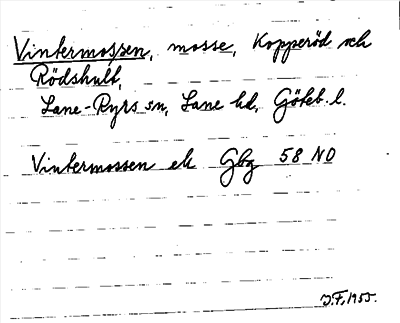 Vintermossen, mosse, Kopperöd och
Rödshult,
Lane-Ryrs sn, Lane hd, Göteb. l.
Vintermossen ek Gbg 58 NO
J.F. 1955.